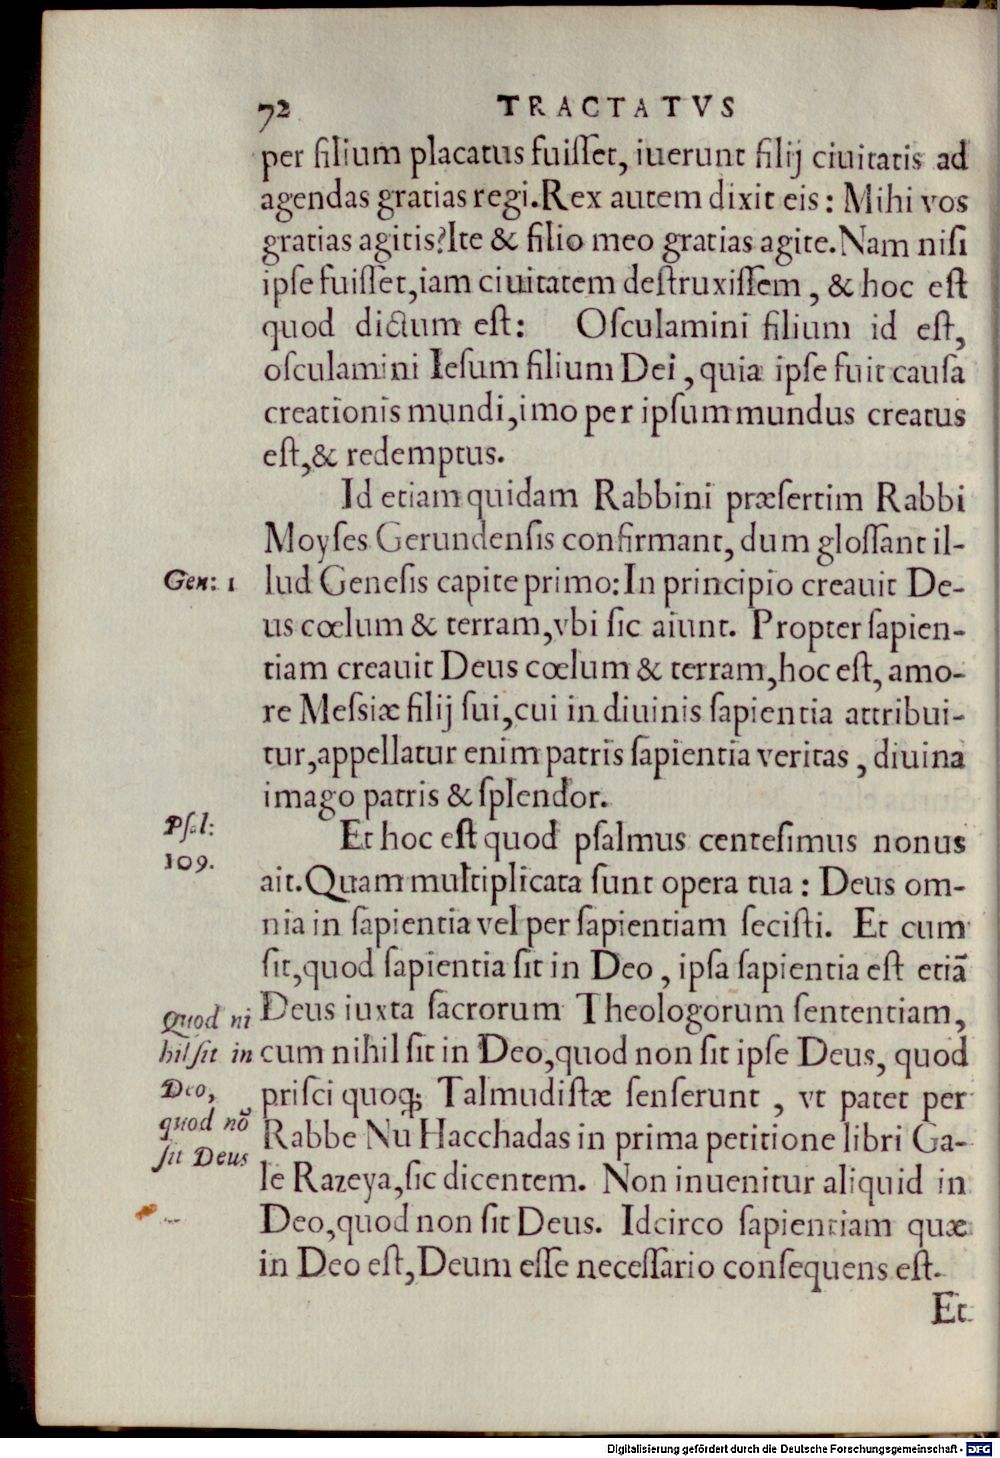 72 TRACTATVS
per filium placatus fuiſſet, iuerunt filij ciuitatis ad
agendas gratias regi. Rex autem dixit eis: Mihi vos
gratias agitis? Ite & filio meo gratias agite. Nam niſi
ipſe fuiſſet, iam ciuitatem deſtruxiſſem, & hoc eſt
quod dictum eſt: Oſculamini filium id eſt,
oſculamini Ieſum filium Dei, quia ipſe fuit cauſa
creationis mundi, imo per ipſum mundus creatus
eſt, & redemptus.
Id etiam quidam Rabbini præſertim Rabbi
Moyſes Gerundenſis confirmant, dum gloſſant il-
Gen: 1
lud Geneſis capite primo: In principio creauit De-
us cœlum & terram, vbi ſic aiunt. Propter ſapien-
tiam creauit Deus cœlum & terram, hoc eſt, amo-
re Meſsiæ filij ſui, cui in diuinis ſapientia attribui-
tur, appellatur enim patris ſapientia veritas, diuina
imago patris & ſplendor.
Pſal:
109.
Et hoc eſt quod pſalmus centeſimus nonus
ait. Quam multiplicata ſunt opera tua: Deus om-
nia in ſapientia vel per ſapientiam feciſti. Et cum
ſit, quod ſapientia ſit in Deo, ipſa ſapientia eſt etiã
Deus iuxta ſacrorum Theologorum ſententiam,
Quod ni
hil ſit in
Deo,
quod nõ
ſit Deus
cum nihil ſit in Deo, quod non ſit ipſe Deus, quod
priſci quoq; Talmudiſtæ ſenſerunt, vt patet per
Rabbe Nu Hacchadas in prima petitione libri Ga-
le Razeya, ſic dicentem. Non inuenitur aliquid in
Deo, quod non ſit Deus. Idcirco ſapientiam quæ
in Deo eſt, Deum eſſe neceſſario conſequens eſt.
Et
Digitalisierung gefördert durch die Deutsche Forschungsgemeinschaft - DFG